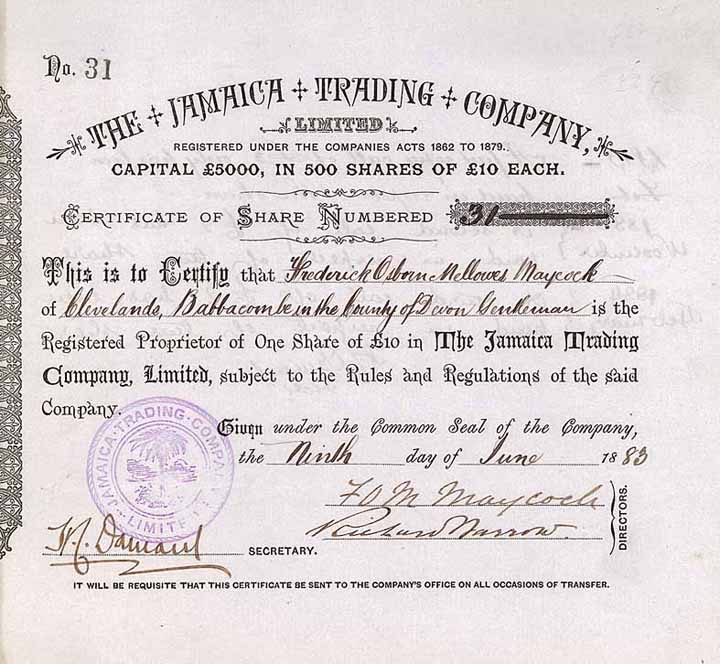 No. 31
THE JAMAICA TRADING COMPANY,
LIMITED
REGISTERED UNDER THE COMPANIES ACTS 1862 TO 1879.
CAPITAL £5000, IN 500 SHARES OF £10 EACH.
CERTIFICATE OF SHARE NUMBERED 31
This is to Certify that Frederick Osborn Mellowes Maycock
of Clevelands, Babbacombe in the County of Devon Gentleman is the
Registered Proprietor of One Share of £10 in The Jamaica Trading
Company, Limited, subject to the Rules and Regulations of the said
Company.
Given under the Common Seal of the Company,
the Ninth day of June 1883
JAMAICA·TRADING·COMPANY LIMITED
F O M Maycock
Richard
DIRECTORS.
SECRETARY.
IT WILL BE REQUISITE THAT THIS CERTIFICATE BE SENT TO THE COMPANY'S OFFICE ON ALL OCCASIONS OF TRANSFER.